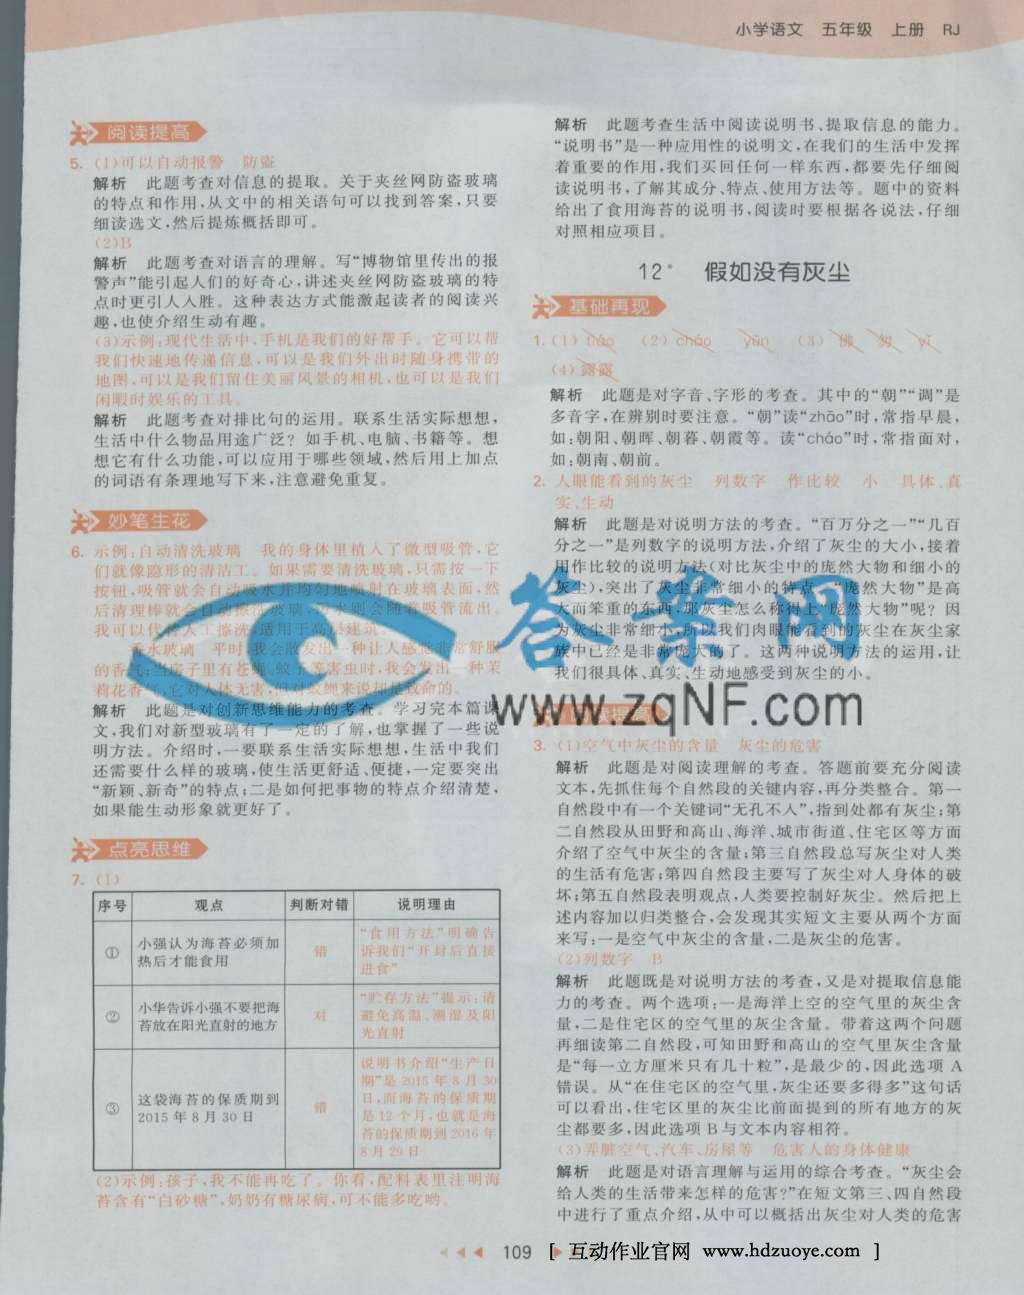 小学语文 五年级 上册 RJ
阅读提高
5. (1)可以自动报警 防盗
解析 此题考查对信息的提取。关于夹丝网防盗玻璃
的特点和作用,从文中的相关语句可以找到答案,只要
细读选文,然后提炼概括即可。
(2)B
解析 此题考查对语言的理解。写“博物馆里传出的报
警声”能引起人们的好奇心,讲述夹丝网防盗玻璃的特
点时更引人入胜。这种表达方式能激起读者的阅读兴
趣,也使介绍生动有趣。
(3)示例:现代生活中,手机是我们的好帮手。它可以帮
我们快速地传递信息,可以是我们外出时随身携带的
地图,可以是我们留住美丽风景的相机,也可以是我们
闲暇时娱乐的工具。
解析 此题考查对排比句的运用。联系生活实际想想,
生活中什么物品用途广泛? 如手机、电脑、书籍等。想
想它有什么功能,可以应用于哪些领域,然后用上加点
的词语有条理地写下来,注意避免重复。
妙笔生花
6. 示例:自动清洗玻璃 我的身体里植入了微型吸管,它
们就像隐形的清洁工。如果需要清洗玻璃,只需按一下
按钮,吸管就会自动吸水并均匀地喷射在玻璃表面,然
后清理棒就会自动擦洗玻璃,污水则会随着吸管流出。
我可以代替人工擦洗,适用于高层建筑。
香水玻璃 平时,我会散发出一种让人感觉非常舒服
的香气;当房子里有苍蝇、蚊子等害虫时,我会发出一种茉
莉花香气,它对人体无害,但对蚊蝇来说却是致命的。
解析 此题是对创新思维能力的考查。学习完本篇课
文,我们对新型玻璃有了一定的了解,也掌握了一些说
明方法。介绍时,一要联系生活实际想想,生活中我们
还需要什么样的玻璃,使生活更舒适、便捷,一定要突出
“新颖、新奇”的特点;二是如何把事物的特点介绍清楚,
如果能生动形象就更好了。
点亮思维
7. (1)
序号 观点 判断对错 说明理由
① 小强认为海苔必须加
热后才能食用 错 “食用方法”明确告
诉我们“开封后直接
进食”
② 小华告诉小强不要把海
苔放在阳光直射的地方 对 “贮存方法”提示:请
避免高温、潮湿及阳
光直射
③ 这袋海苔的保质期到
2015年8月30日 错 说明书介绍“生产日
期”是2015年8月30
日,而海苔的保质期
是12个月,也就是海
苔的保质期到2016年
8月29日
(2)示例:孩子,我不能再吃了。你看,配料表里注明海
苔含有“白砂糖”,奶奶有糖尿病,可不能多吃哟。
解析 此题考查生活中阅读说明书、提取信息的能力。
“说明书”是一种应用性的说明文,在我们的生活中发挥
着重要的作用,我们买回任何一样东西,都要先仔细阅
读说明书,了解其成分、特点、使用方法等。题中的资料
给出了食用海苔的说明书,阅读时要根据各说法,仔细
对照相应项目。
12* 假如没有灰尘
基础再现
1. (1) tiáo (2) cháo yūn (3) 佛 匆 yǐ
(4) 露露
解析 此题是对字音、字形的考查。其中的“朝”“调”是
多音字,在辨别时要注意。“朝”读“zhāo”时,常指早晨,
如:朝阳、朝晖、朝暮、朝霞等。读“cháo”时,常指面对,
如:朝南、朝前。
2. 人眼能看到的灰尘 列数字 作比较 小 具体、真
实、生动
解析 此题是对说明方法的考查。“百万分之一”“几百
分之一”是列数字的说明方法,介绍了灰尘的大小,接着
用作比较的说明方法(对比灰尘中的庞然大物和细小的
灰尘),突出了灰尘非常细小的特点。“庞然大物”是高
大而笨重的东西,那灰尘怎么称得上“庞然大物”呢? 因
为灰尘非常细小,所以我们肉眼能看到的灰尘在灰尘家
族中已经是非常庞大的了。这两种说明方法的运用,让
我们很具体、真实、生动地感受到灰尘的小。
答案网
www.zqNF.com
阅读提高
3. (1)空气中灰尘的含量 灰尘的危害
解析 此题是对阅读理解的考查。答题前要充分阅读
文本,先抓住每个自然段的关键内容,再分类整合。第一
自然段中有一个关键词“无孔不入”,指到处都有灰尘;第
二自然段从田野和高山、海洋、城市街道、住宅区等方面
介绍了空气中灰尘的含量;第三自然段总写灰尘对人类
的生活有危害;第四自然段主要写了灰尘对人身体的破
坏;第五自然段表明观点,人类要控制好灰尘。然后把上
述内容加以归类整合,会发现其实短文主要从两个方面
来写:一是空气中灰尘的含量,二是灰尘的危害。
(2)列数字 B
解析 此题既是对说明方法的考查,又是对提取信息能
力的考查。两个选项:一是海洋上空的空气里的灰尘含
量,二是住宅区的空气里的灰尘含量。带着这两个问题
再细读第二自然段,可知田野和高山的空气里灰尘含量
是“每一立方厘米只有几十粒”,是最少的,因此选项 A
错误。从“在住宅区的空气里,灰尘还要多得多”这句话
可以看出,住宅区里的灰尘比前面提到的所有地方的灰
尘都要多,因此选项B与文本内容相符。
(3)弄脏空气、汽车、房屋等 危害人的身体健康
解析 此题是对语言理解与运用的综合考查。“灰尘会
给人类的生活带来怎样的危害?”在短文第三、四自然段
中进行了重点介绍,从中可以概括出灰尘对人类的危害
109
[ 互动作业官网 www.hdzuoye.com ]